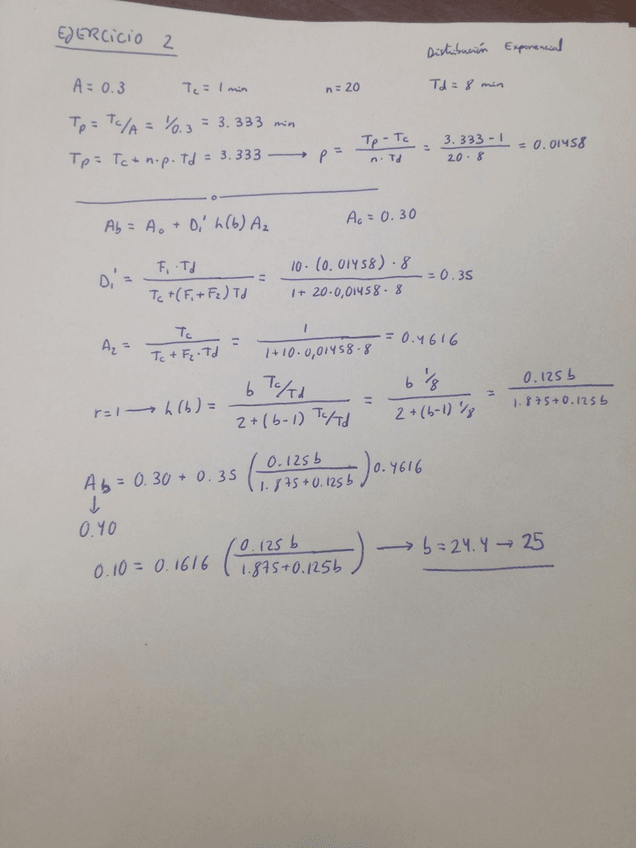 EJERCICIO 2
Distribución Exponencial
A = 0.3 Tc = 1 min n = 20 Td = 8 min
Tp = Tc/A = 1/0.3 = 3.333 min
Tp = Tc + n·p·Td = 3.333 → p = (Tp - Tc)/(n·Td) = (3.333 - 1)/(20·8) = 0.01458
Ab = A₀ + D₁' h(b) A₂ A₀ = 0.30
D₁' = (F₁·Td)/(Tc + (F₁+F₂) Td) = (10·(0.01458)·8)/(1 + 20·0,01458·8) = 0.35
A₂ = Tc/(Tc + F₂·Td) = 1/(1+10·0,01458·8) = 0.4616
r=1 → h(b) = (b Tc/Td)/(2+(b-1) Tc/Td) = (b 1/8)/(2+(b-1) 1/8) = (0.125b)/(1.875+0.125b)
Ab = 0.30 + 0.35 ((0.125b)/(1.875+0.125b)) 0.4616
↓
0.40
0.10 = 0.1616 ((0.125b)/(1.875+0.125b)) → b = 24.4 → 25